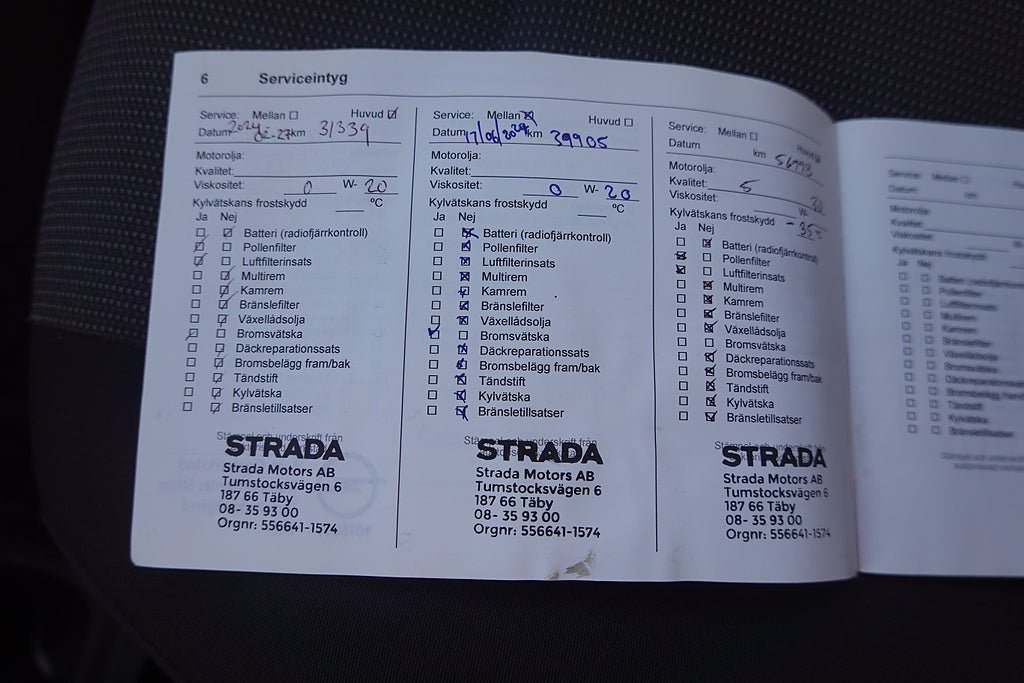 6 Serviceintyg
Service: Mellan Huvud
Datum 2024 km 31339
Motorolja:
Kvalitet:
Viskositet: 0 W- 20
Kylvätskans frostskydd °C
Ja Nej
Batteri (radiofjärrkontroll)
Pollenfilter
Luftfilterinsats
Multirem
Kamrem
Bränslefilter
Växellådsolja
Bromsvätska
Däckreparationssats
Bromsbelägg fram/bak
Tändstift
Kylvätska
Bränsletillsatser
STRADA
Strada Motors AB
Tumstocksvägen 6
187 66 Täby
08- 35 93 00
Orgnr: 556641-1574
Service: Mellan Huvud
Datum km 39905
Motorolja:
Kvalitet:
Viskositet: 0 W- 20
Kylvätskans frostskydd °C
Ja Nej
Batteri (radiofjärrkontroll)
Pollenfilter
Luftfilterinsats
Multirem
Kamrem
Bränslefilter
Växellådsolja
Bromsvätska
Däckreparationssats
Bromsbelägg fram/bak
Tändstift
Kylvätska
Bränsletillsatser
Stämpel och underskrift från
STRADA
Strada Motors AB
Tumstocksvägen 6
187 66 Täby
08- 35 93 00
Orgnr: 556641-1574
Service: Mellan Huvud
Datum km
Motorolja:
Kvalitet: 5
Viskositet: W- 30
Kylvätskans frostskydd -35
Ja Nej
Batteri (radiofjärrkontroll)
Pollenfilter
Luftfilterinsats
Multirem
Kamrem
Bränslefilter
Växellådsolja
Bromsvätska
Däckreparationssats
Bromsbelägg fram/bak
Tändstift
Kylvätska
Bränsletillsatser
STRADA
Strada Motors AB
Tumstocksvägen 6
187 66 Täby
08- 35 93 00
Orgnr: 556641-1574
Service: Mellan
Datum km
Motorolja:
Kvalitet:
Viskositet:
Kylvätskans frostskydd
Ja Nej
Batteri (radiofjärrkontroll)
Pollenfilter
Luftfilterinsats
Multirem
Kamrem
Bränslefilter
Växellådsolja
Bromsvätska
Däckreparationssats
Bromsbelägg
Tändstift
Kylvätska
Bränsletillsatser